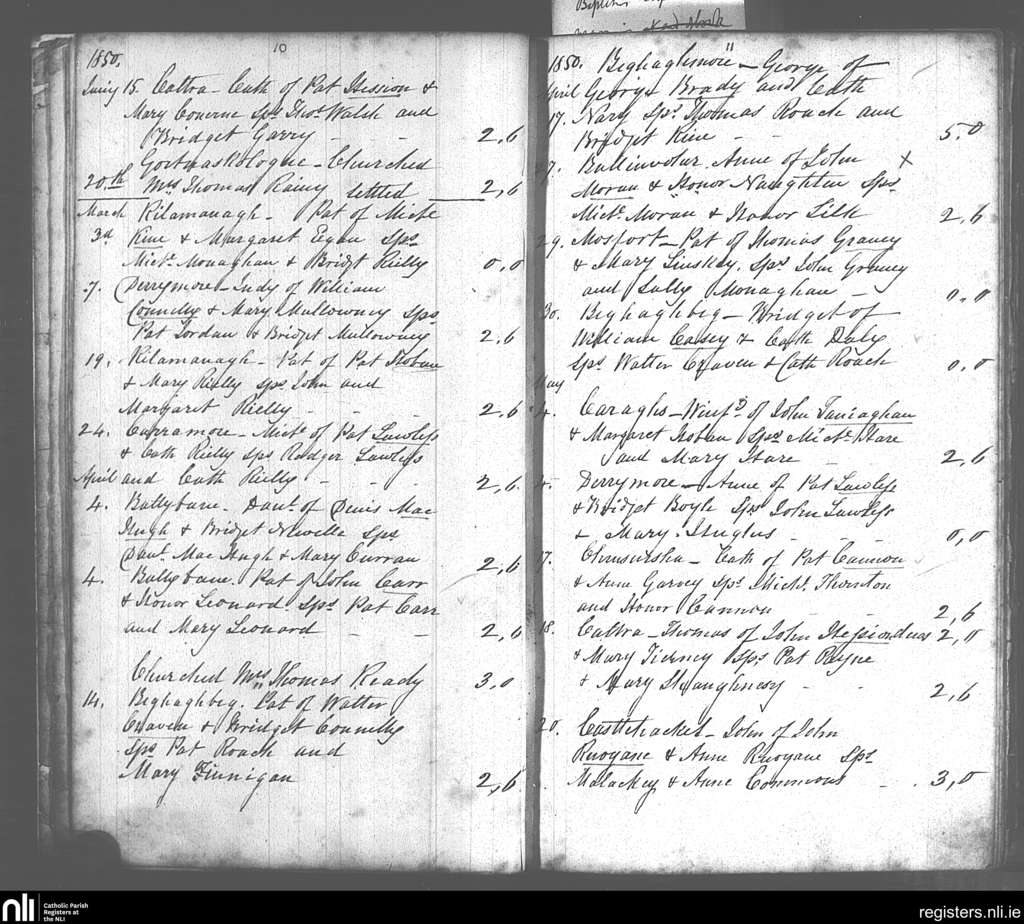 Baptisms
10
1850.
15. Caltra - Cath of Pat Hession &
Mary Coneene Sps Thos. Walsh and
Bridget Garry - - 2,6
Churched
20th Mrs Thomas Rainy settled 2,6
March Kilamanagh - Pat of Mich
3d Kine & Margaret Egan Sps
Micl. Monaghan & Bridgt Rielly 0,0
7. Derrymore - Judy of William
Connelly & Mary Mullowney Sps
Pat Jordan & Bridget Mullowney 2.6
19. Kilamanagh - Pat of Pat Hoban
& Mary Rielly Sps John and
Margaret Rielly - - - 2,6
24. Curramore - Micl. of Pat Lawless
& Cath Rielly Sps Rodger Lawless
April and Cath Rielly - - - 2,6
4. Ballybane. Danl. of Denis Mac
Hugh & Bridget Newelle Sps
Danl. Mac Hugh & Mary Curran 2,6
4. Ballybane. Pat of John Carr
& Honor Leonard Sps. Pat Carr
and Mary Leonard - - 2,6
Churched Mrs Thomas Ready 3.0
14. Beghaghbeg. Pat of Walter
Craven & Bridget Connelly
Sps Pat Roach and
Mary Finnigan 2,6
1850. Beghaghmore - George of
April George Brady and Cath
17. Nary Sps. Thomas Roach and
Bridget Kine - - 5.0
27. Ballinvolar. Anne of John X
Moran & Honor Naughten Sps.
Micl. Moran & Honor Silk 2,6
29. Mosfort - Pat of Thomas Graney
& Mary Linskey. Sps. John Graney
and Sally Monaghan - 0.0
30. Beghaghbeg - Bridget of
William Casey & Cath Daly
Sps. Walter Craven & Cath Roach 0.0
May
4. Caraghs - Winfd. of John
& Margaret Hoban Sps Micl. Hare
and Mary Hare - 2,6
Derrymore - Anne of Pat Lawless
& Bridget Boyle Sps John Lawless
& Mary Hughes - - 0,0
17. - Cath of Pat Cannon
& Anne Garvey Sps. Micl. Thornton
and Honor Cannon - - 2,6
18. Caltra - Thomas of John Hession dues 2,0
& Mary Tierney Sps Pat Payne
& Mary Shaughnesy - - 2,6
20. Castlehacket - John of John
Ruogane & Anne Ruogane Sps.
Malackey & Anne Commons - . 3,0
nli
Catholic Parish
Registers at
the NLI
registers.nli.ie